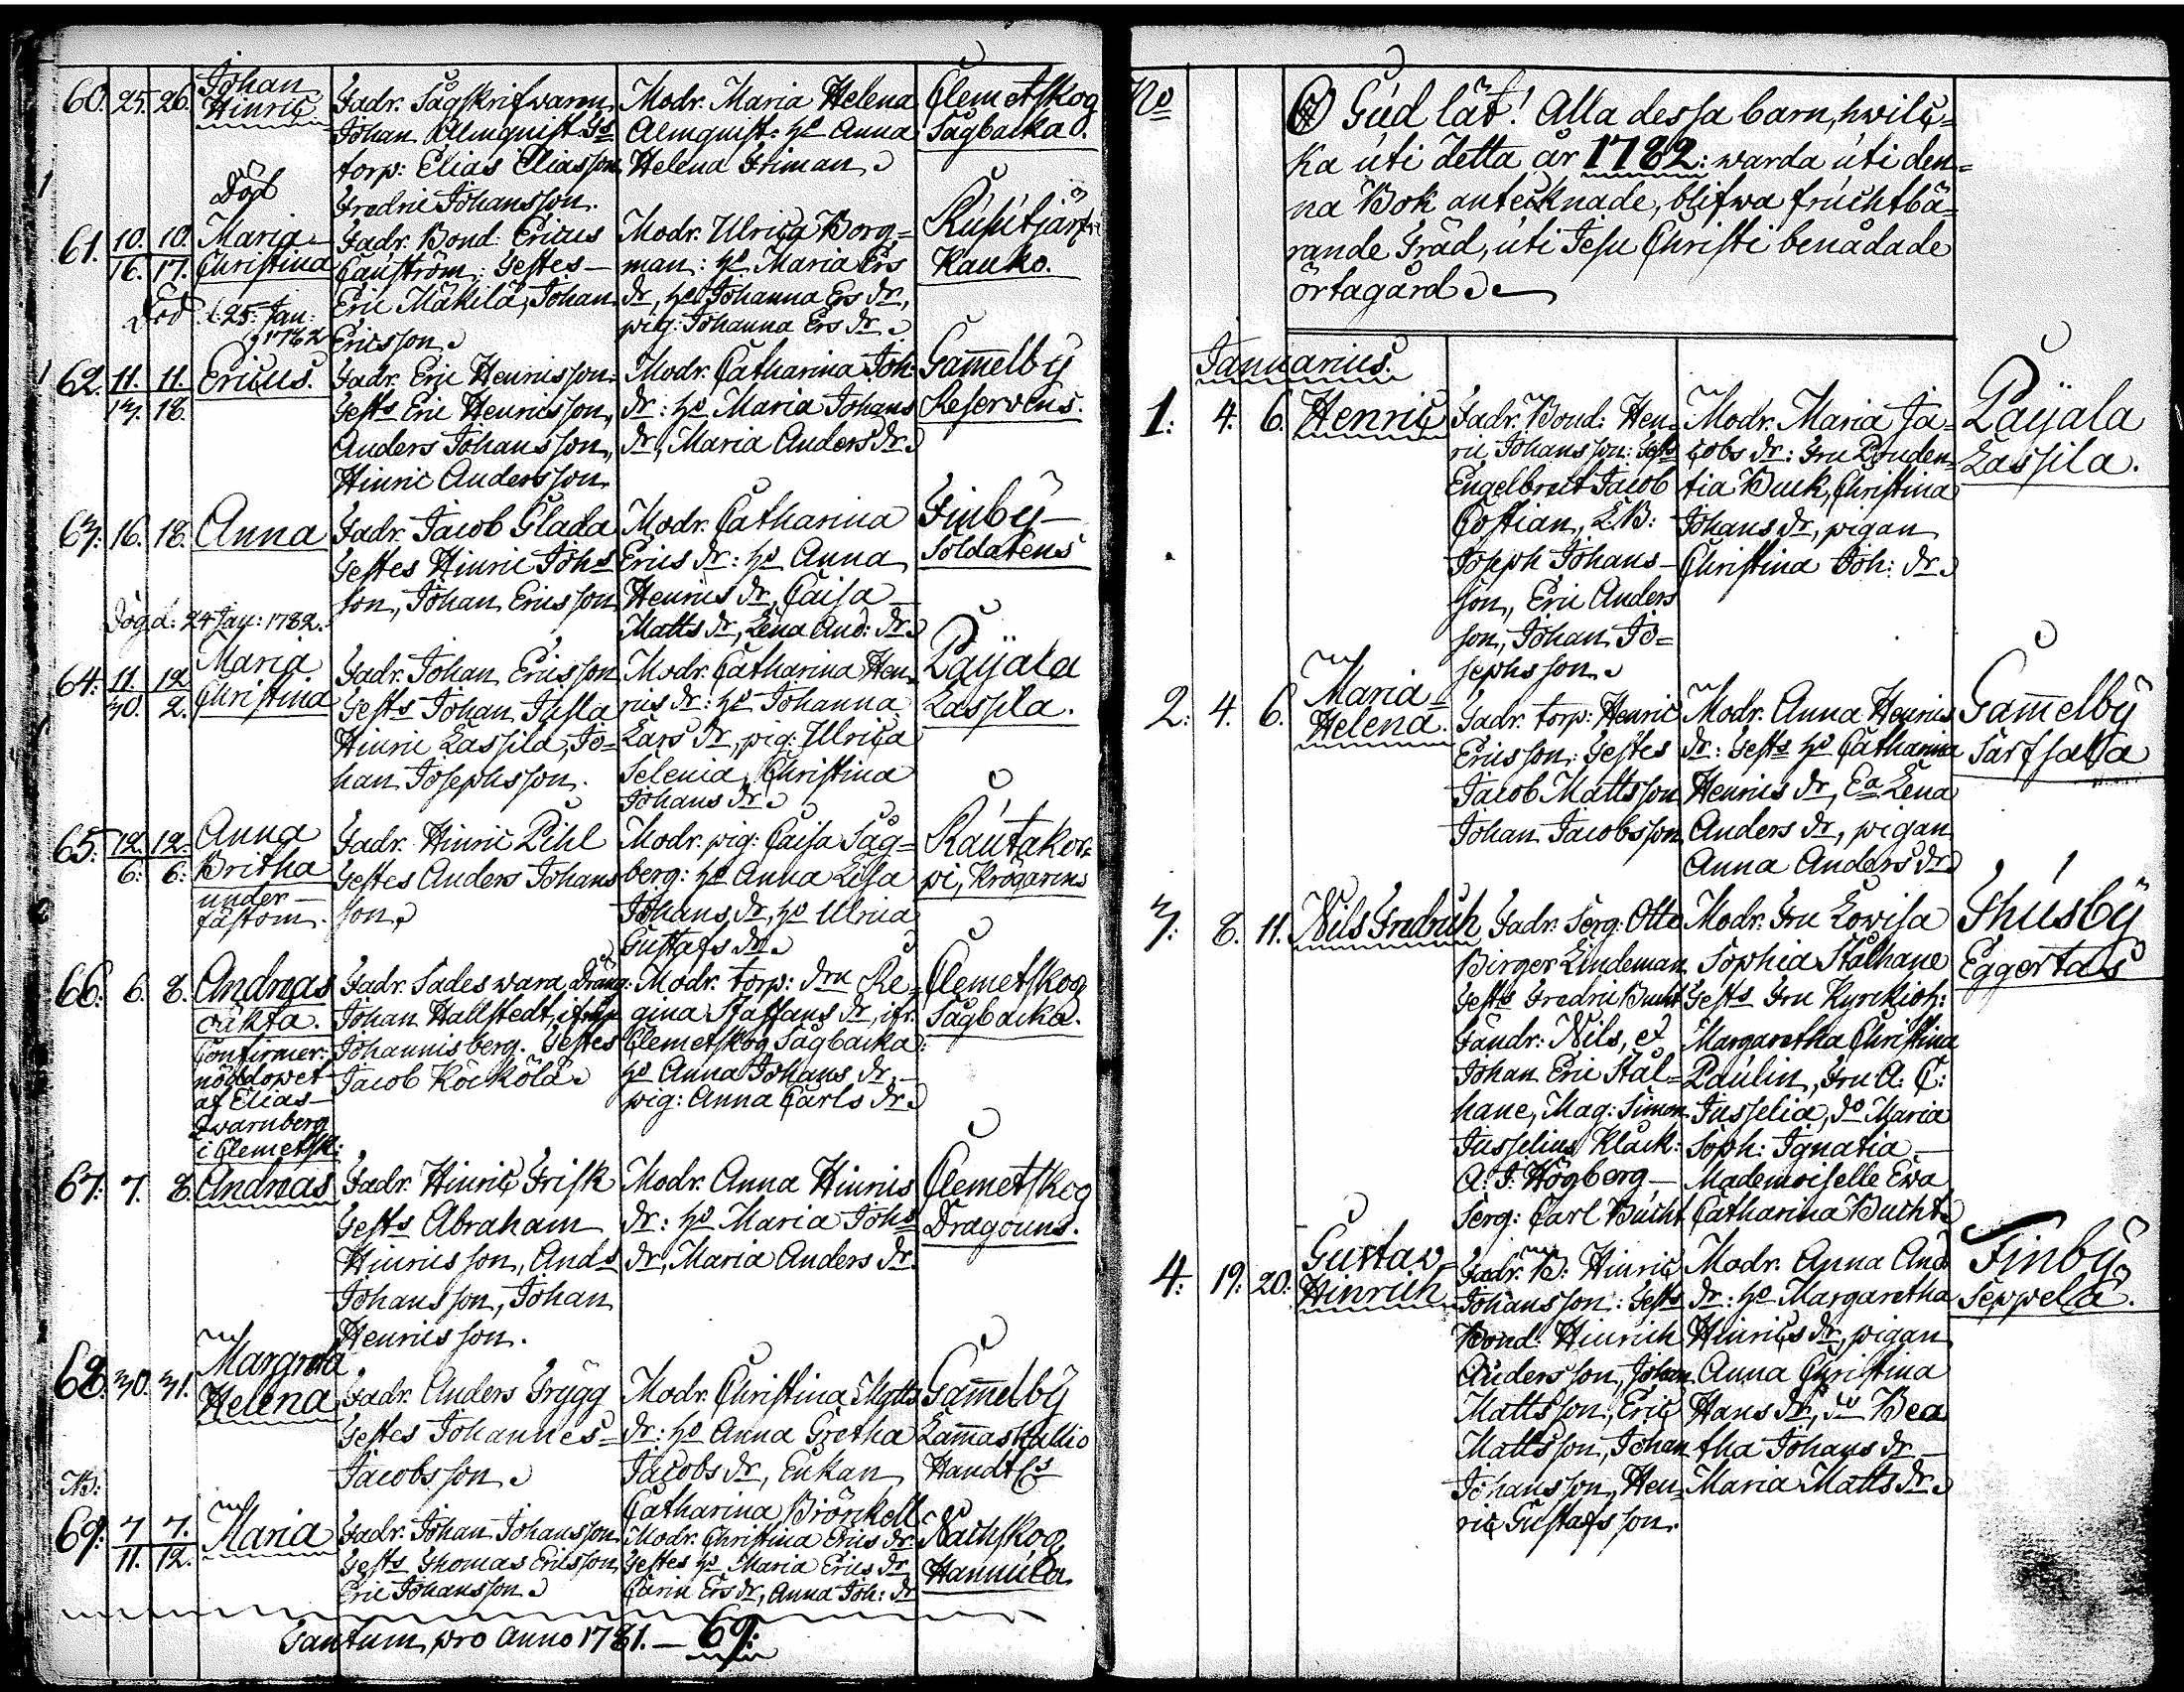 60. 25. 26. Johan Hinric
Fadr. Sågskrifwaren
Johan Almquist. Gs
torp: Elias Eliasson
Fredric Johansson.
Modr. Maria Helena
Almquist: ho Anna
Helena Friman
Clemetskog
Sågbacka.
Död
61. 10. 10. Maria
16. 17. Christina
Död. d. 25. Jan:
1782
Fadr. Bond. Ericus
Caúström: Gestes
Eric Mäkilä, Johan
Ericsson
Modr. Ulrica Borg=
man: ho Maria Ers
dr, ho Johanna Ers dr,
pig: Johanna Ers dr
Kauko.
62. 11. 11. Ericus.
17. 18.
Fadr. Eric Henricsson
Gests Eric Henricsson,
Anders Johansson,
Hinric Andersson
Modr. Catharina Joh:
dr: ho Maria Johans
dr, Maria Anders dr
Gam̄elby
Reservens.
63. 16. 18. Anna
Fadr. Jacob Glada
Gestes Hinric Johs
son, Johan Ericsson
Modr. Catharina
Erics dr: ho Anna
Henrics dr, Caisa
Matts dr, Lena And: dr
Finby
Soldatens
Dög d: 24 Jan: 1782.
64. 11. 12 Maria
30. 2. Christina
Fadr. Johan Ericsson
Gests Johan Jussla
Hinric Lassila, Jo=
han Josephsson.
Modr. Catharina Hen
rics dr: ho Johanna
Lars dr, pig: Ulrica
Selenia, Christina
Johans dr
Päyälä
Lassila.
65. 12. 12. Anna
6: 6: Britha
under
fästom.
Fadr. Hinric Pihl
Gestes Anders Johans
son
Modr. pig: Caisa Sag=
berg: ho Anna Lisa
Johans dr, ho Ulrica
Gustafs dr
Rautakor=
pi, Krögarens
66. 6. 8. Andreas
oäkta.
Confirmer:
nöddopet
af Elias
Qwarnberg
i Clemetsk:
Fadr. Sades wara dräng:
Johan Hallstedt, ifrån
Johannisberg. Gestes
Jacob Köckölä
Modr. torp: dru Re=
gina Staffans dr, ifr.
Clemetskog Sågbacka:
ho Anna Johans dr,
pig: Anna Carls dr
Clemetskog
Sågbacka.
67. 7. 8. Andreas
Fadr. Hinric Frisk
Gests Abraham
Hinricsson, Ands
Johansson, Johan
Henricsson.
Modr. Anna Hinrics
dr: ho Maria Johs
dr, Maria Anders dr.
Clemetskog
Dragouns.
68. 30. 31. Margreta
Helena
Fadr. Anders Trygg
Gestes Johannes=
Jacobsson
Modr. Christina Matts
dr: ho Anna Gretha
Jacobs dr, Enkan
Catharina Brönkell
Gam̄elby
Lam̄askallio
NB:
69. 7 7. Maria
11. 12.
Fadr. Johan Johansson
Gests Thomas Ericsson
Eric Johansson
Modr. Christina Erics dr:
Gestes ho Maria Erics dr
Carin Ers dr, Anna Joh: dr
Näsiskog
Hannula
Tantum pro Anno 1781. — 69:
No
O Gud låt! Alla dessa barn, hwilc=
ka uti detta år 1782: warda uti den=
na Bok antecknade, blifwa fruchtbä=
rande Träd, uti Jesu Christi benådade
örtagård
Januarius.
1: 4. 6. Henric
Fadr. Bond: Hen=
ric Johansson: Gests
Engelbrect Jacob
Costian, L.B:
Joseph Johans
son, Eric Anders
son, Johan Jo=
sephsson
Modr. Maria Ja=
cobs dr: Fru Pruden
tia Buck, Christina
Johans dr, pigan
Christina Joh: dr
Päyälä
Lassila.
2: 4. 6. Maria
Helena.
Fadr. torp: Henric
Ericsson: Gestes
Jacob Mattsson
Johan Jacobsson
Modr. Anna Henrics
dr: Gests ho Catharina
Henrics dr, Ea Lena
Anders dr, pigan
Anna Anders dr
Gam̄elby
Sarfsala
3: 8. 11. Nils Fredrich
Fadr. Serg: Otto
Birger Lindeman
Gests Fredric Bucht
Fändr: Nils, et
Johan Eric Stål=
hane, Mag: Simon
Jusselius, Klåck:
A. J. Högberg
Serg: Carl Bucht
Modr. Fru Lowisa
Sophia Stålhane
Gests Fru Kyrckioh:
Margaretha Christina
Paulin, Fru A: C:
Jusselia, do Maria
Soph: Ignatia
Mademoiselle Ewa
Catharina Bucht
Thusby
Eggertas
4: 19: 20: Gustav
Hinrich
Fadr. B: Hinric
Johansson: Gests
Bond: Hinrich
Andersson, Johan
Mattsson, Eric
Mattsson, Johan
Johansson, Hen=
ric Gustafsson.
Modr. Anna And
dr: ho Margaretha
Hinrics dr, pigan
Anna Christina
Hans dr, do Bea
tha Johans dr
Maria Matts dr
Finby
Seppälä.